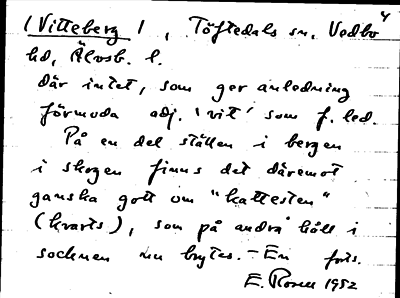 4
(Vitteberg), Töftedals sn, Vedbo
hd, Älvsb. l.
där intet, som ger anledning
förmoda adj. 'vit' som f. led.
På en del ställen i bergen
i skogen finns det däremot
ganska gott om "kattesten"
(kvarts), som på andra håll i
socknen nu brytes. - En forts.
E. Rosell 1952